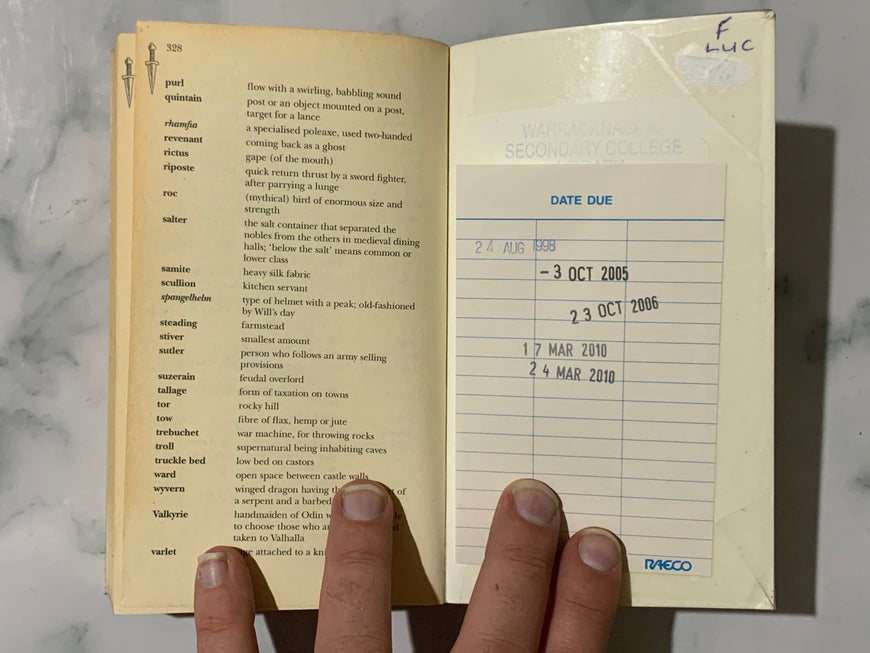 328
purl flow with a swirling, babbling sound
quintain post or an object mounted on a post,
target for a lance
rhamfia a specialised poleaxe, used two-handed
revenant coming back as a ghost
rictus gape (of the mouth)
riposte quick return thrust by a sword fighter,
after parrying a lunge
roc (mythical) bird of enormous size and
strength
salter the salt container that separated the
nobles from the others in medieval dining
halls; 'below the salt' means common or
lower class
samite heavy silk fabric
scullion kitchen servant
spangelhelm type of helmet with a peak; old-fashioned
by Will's day
steading farmstead
stiver smallest amount
sutler person who follows an army selling
provisions
suzerain feudal overlord
tallage form of taxation on towns
tor rocky hill
tow fibre of flax, hemp or jute
trebuchet war machine, for throwing rocks
troll supernatural being inhabiting caves
truckle bed low bed on castors
ward open space between castle walls
wyvern winged dragon having of
a serpent and a barbed
Valkyrie handmaiden of Odin
to choose those who
taken to Valhalla
varlet attached to a
F
LUC
WARRACKNABEAL
SECONDARY COLLEGE
LIBRARY
DATE DUE
24 AUG 1998
-3 OCT 2005
23 OCT 2006
17 MAR 2010
24 MAR 2010
RAECO